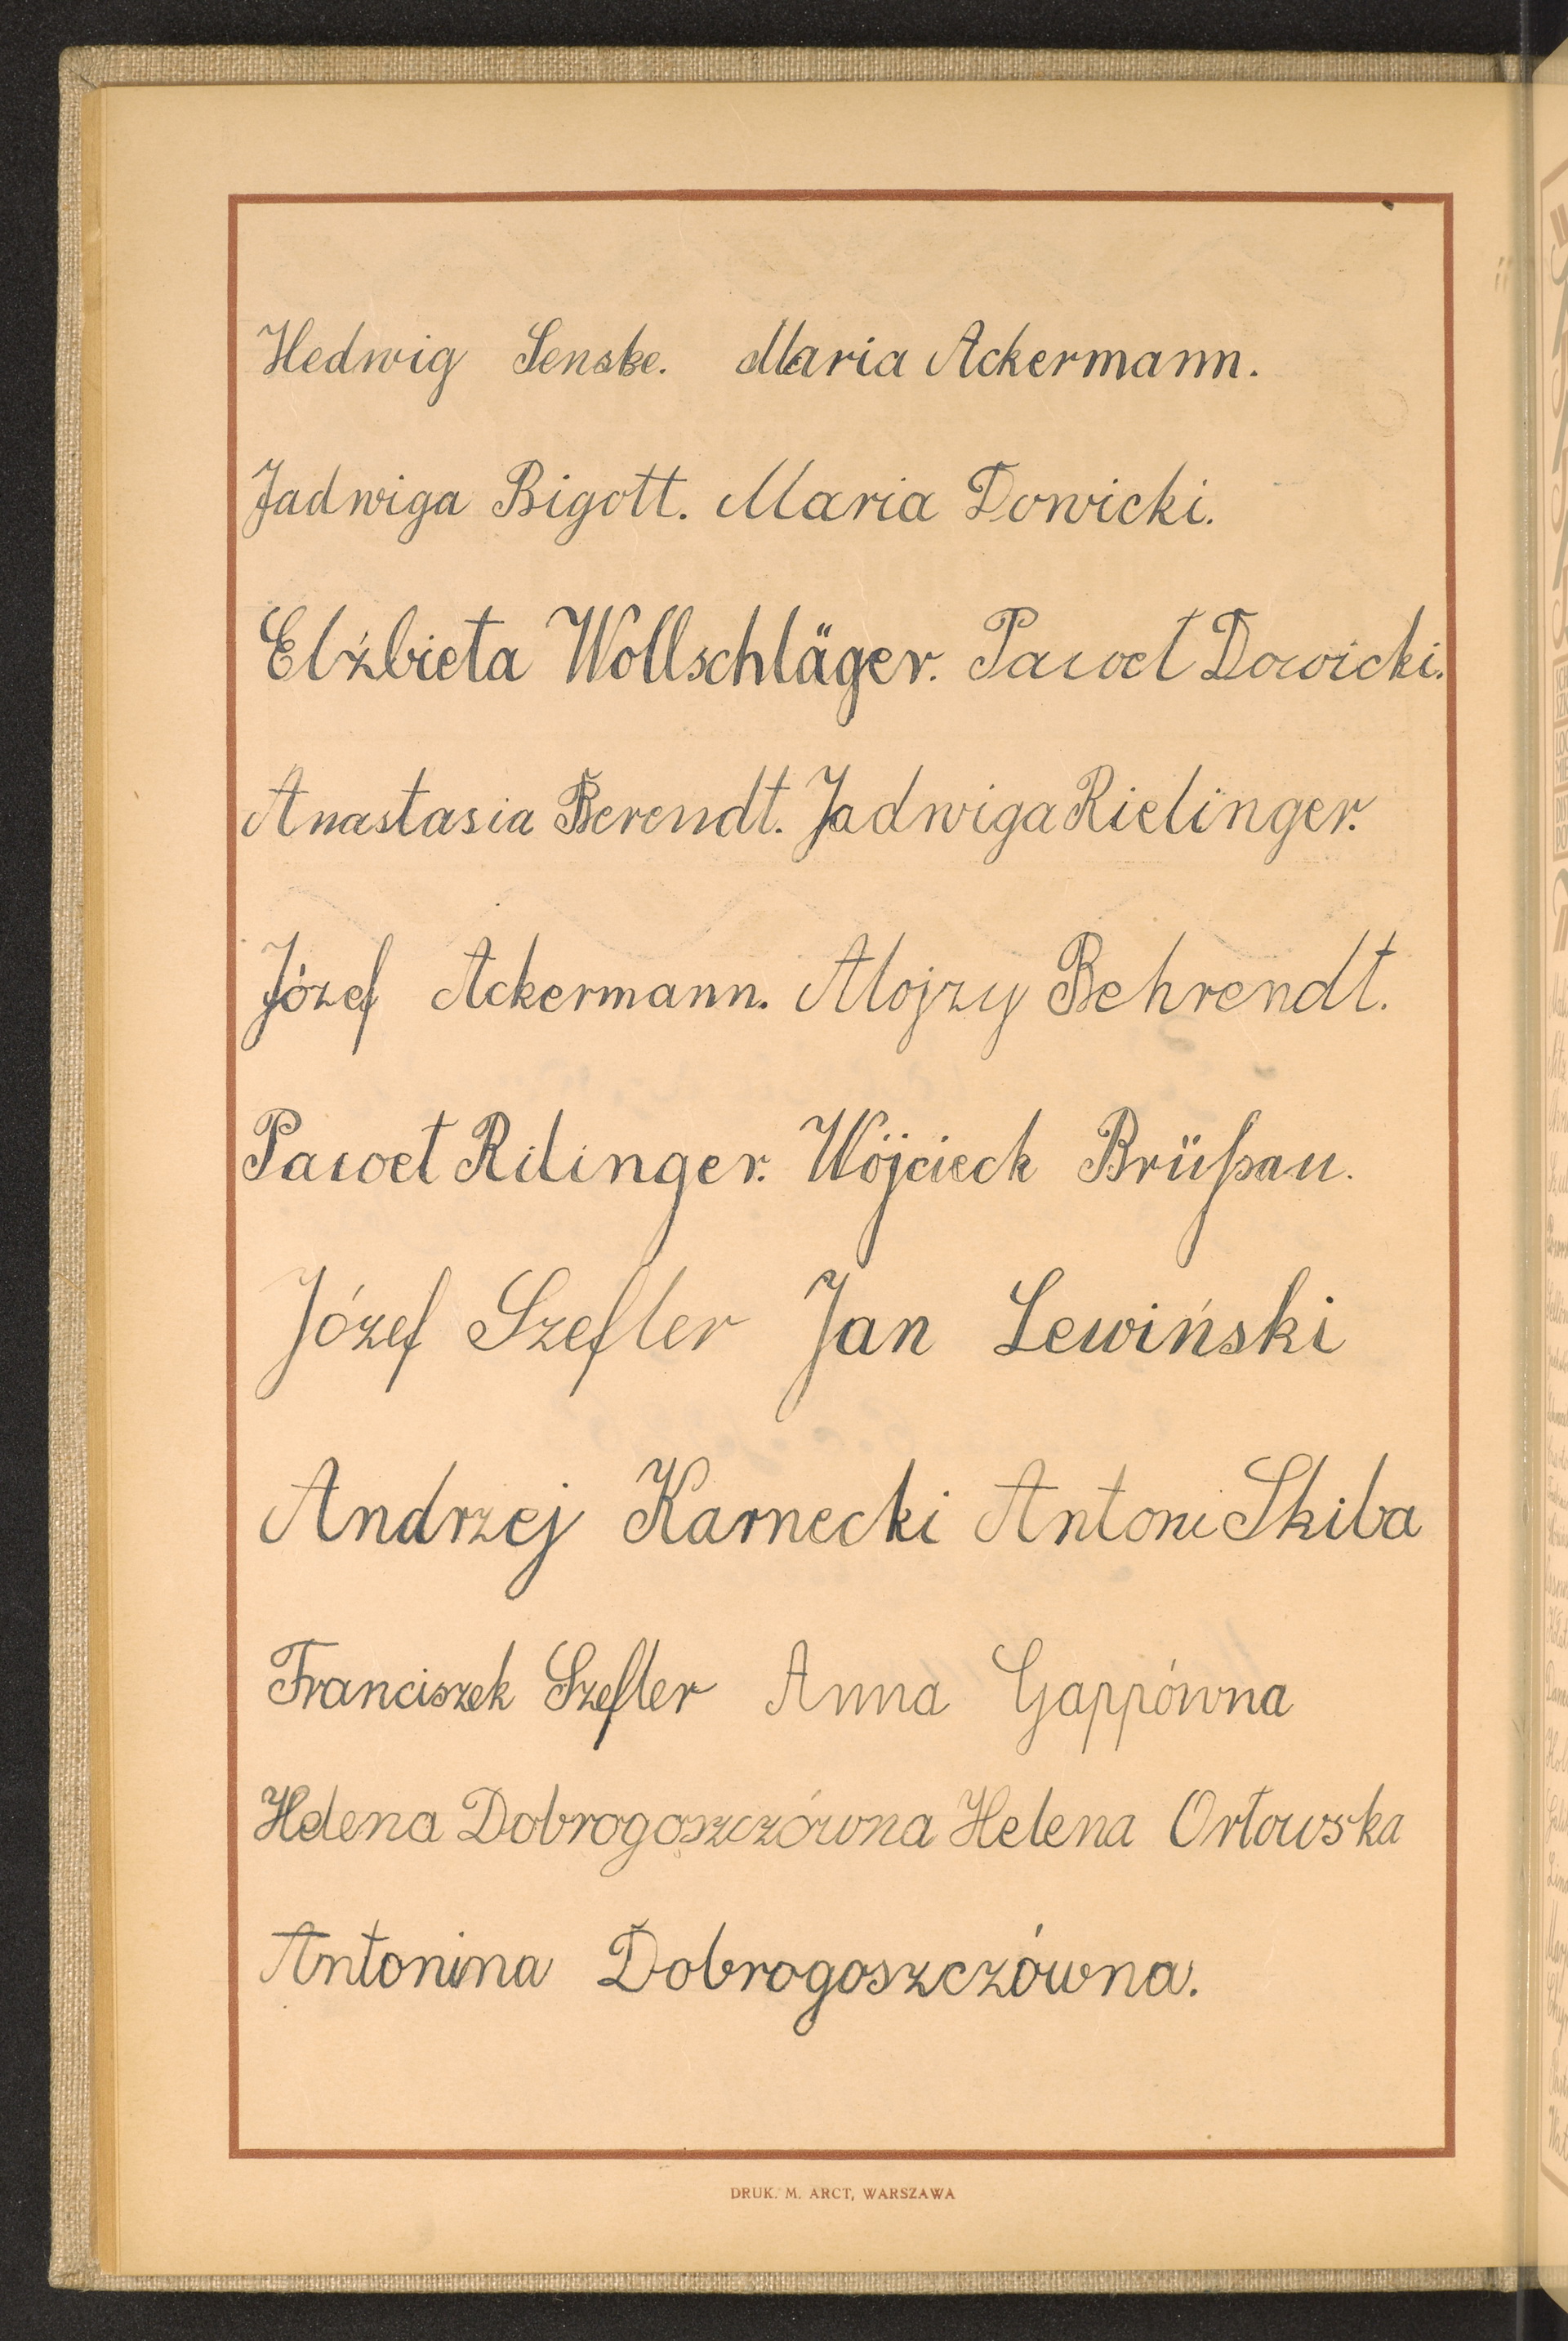 Hedwig Senske. Maria Ackermann.
Jadwiga Bigott. Maria Dowicki.
Elżbieta Wollschläger. Paweł Dowicki.
Anastasia Berendt. Jadwiga Rielinger.
Józef Ackermann. Alojzy Behrendt.
Paweł Rilinger. Wöjcieck Brüßau.
Józef Szefler Jan Lewiński
Andrzej Karnecki Antoni Skiba
Franciszek Szefler Anna Gappówna
Helena Dobrogoszczówna Helena Orłowska
Antonina Dobrogoszczówna.
DRUK. M. ARCT, WARSZAWA